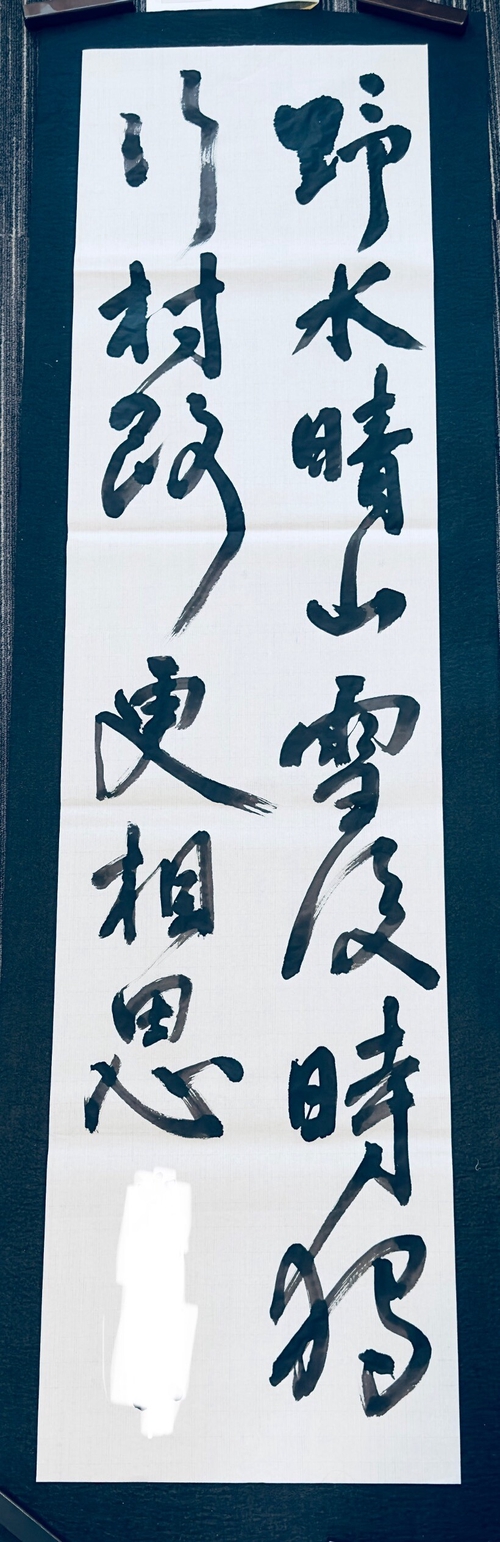 野水晴山雪後時獨
行村路更相思